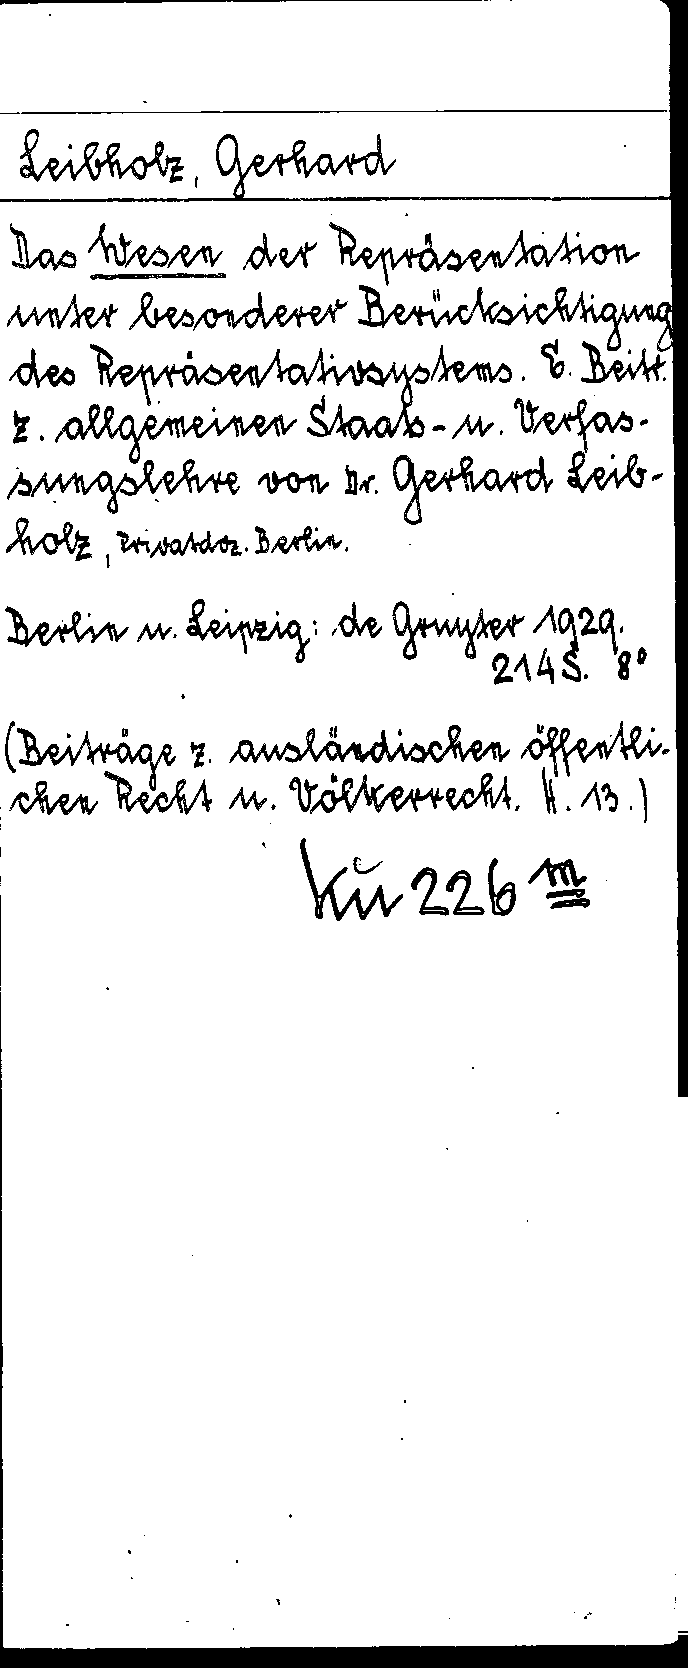 Leibholz, Gerhard
Das Wesen der Repräsentation
unter besonderer Berücksichtigung
des Repräsentativsystems. E. Beitr.
z. allgemeinen Staats- u. Verfas-
sungslehre von Dr. Gerhard Leib-
holz, Privatdoz. Berlin.
Berlin u. Leipzig: de Gruyter 1929.
214 S. 8°
(Beiträge z. ausländischen öffentli-
chen Recht u. Völkerrecht. H. 13.)
Kü 226 m